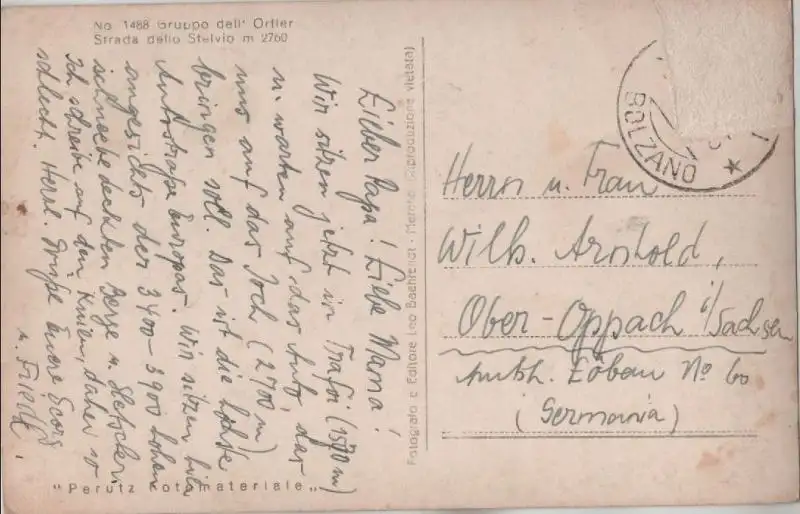 No. 1488 Gruppo dell' Ortler
Strada dello Stelvio m 2760
Lieber Papa! Liebe Mama!
Wir sitzen jetzt in Trafoi (1500 m)
u. warten auf das Auto, das
uns auf das Joch (2700 m)
bringen soll. Das ist die höchste
Autostraße Europas. Wir sitzen hier
angesichts der 3400-3900 hohen
schneebedeckten Berge u. Gletscher.
Ich schreibe auf den Knien, daher so
schlecht. Herzl. Grüße Euere
u. Friedl.
"Perutz Fotomateriale"
Fotografo e Editore Leo Baehrendt - Merano (Riproduzione vietata)
BOLZANO
Herrn u. Frau
Wilh. Arnhold,
Ober-Oppach i/Sachsen
Amtsh. Löbau No 60
(Germania)